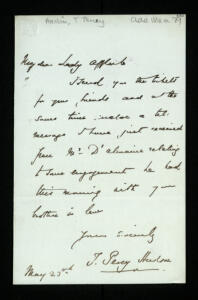 My dear Lady
I send you the tickets
for your friends and at the
same time enclose a tel.
message I have just received
from Mr D'Almaine relating
to some engagement he had
this morning with your
brother in law
Yours sincerely
T. Percy Hudson
May 23rd